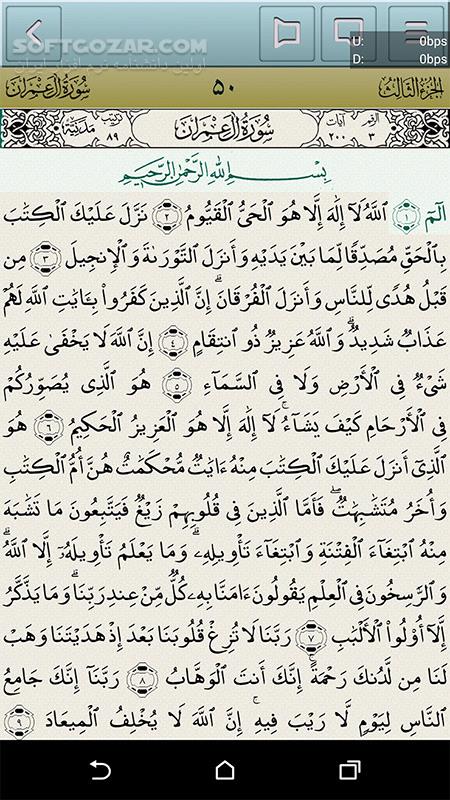 SOFTGOZAR.COM
اولین دانشنامه نرم افزار ایران
U: 0bps
D: 0bps
الجزء الثالث
٥٠
سورة آل عمران
الرقم ٣
آيات ٢٠٠
سورة آل عمران
ترتيب ٨٩
مدنية
بِسْمِ ٱللَّهِ ٱلرَّحْمَٰنِ ٱلرَّحِيمِ
الٓمٓ ١ ٱللَّهُ لَآ إِلَٰهَ إِلَّا هُوَ ٱلْحَىُّ ٱلْقَيُّومُ ٢ نَزَّلَ عَلَيْكَ ٱلْكِتَٰبَ
بِٱلْحَقِّ مُصَدِّقًا لِّمَا بَيْنَ يَدَيْهِ وَأَنزَلَ ٱلتَّوْرَىٰةَ وَٱلْإِنجِيلَ ٣ مِن
قَبْلُ هُدًى لِّلنَّاسِ وَأَنزَلَ ٱلْفُرْقَانَ ۗ إِنَّ ٱلَّذِينَ كَفَرُوا۟ بِـَٔايَٰتِ ٱللَّهِ لَهُمْ
عَذَابٌ شَدِيدٌ ۗ وَٱللَّهُ عَزِيزٌ ذُو ٱنتِقَامٍ ٤ إِنَّ ٱللَّهَ لَا يَخْفَىٰ عَلَيْهِ
شَىْءٌ فِى ٱلْأَرْضِ وَلَا فِى ٱلسَّمَآءِ ٥ هُوَ ٱلَّذِى يُصَوِّرُكُمْ
فِى ٱلْأَرْحَامِ كَيْفَ يَشَآءُ ۚ لَآ إِلَٰهَ إِلَّا هُوَ ٱلْعَزِيزُ ٱلْحَكِيمُ ٦ هُوَ
ٱلَّذِىٓ أَنزَلَ عَلَيْكَ ٱلْكِتَٰبَ مِنْهُ ءَايَٰتٌ مُّحْكَمَٰتٌ هُنَّ أُمُّ ٱلْكِتَٰبِ
وَأُخَرُ مُتَشَٰبِهَٰتٌ ۖ فَأَمَّا ٱلَّذِينَ فِى قُلُوبِهِمْ زَيْغٌ فَيَتَّبِعُونَ مَا تَشَٰبَهَ
مِنْهُ ٱبْتِغَآءَ ٱلْفِتْنَةِ وَٱبْتِغَآءَ تَأْوِيلِهِۦ ۗ وَمَا يَعْلَمُ تَأْوِيلَهُۥٓ إِلَّا ٱللَّهُ ۗ
وَٱلرَّٰسِخُونَ فِى ٱلْعِلْمِ يَقُولُونَ ءَامَنَّا بِهِۦ كُلٌّ مِّنْ عِندِ رَبِّنَا ۗ وَمَا يَذَّكَّرُ
إِلَّآ أُو۟لُوا۟ ٱلْأَلْبَٰبِ ٧ رَبَّنَا لَا تُزِغْ قُلُوبَنَا بَعْدَ إِذْ هَدَيْتَنَا وَهَبْ
لَنَا مِن لَّدُنكَ رَحْمَةً ۚ إِنَّكَ أَنتَ ٱلْوَهَّابُ ٨ رَبَّنَآ إِنَّكَ جَامِعُ
ٱلنَّاسِ لِيَوْمٍ لَّا رَيْبَ فِيهِ ۚ إِنَّ ٱللَّهَ لَا يُخْلِفُ ٱلْمِيعَادَ ٩